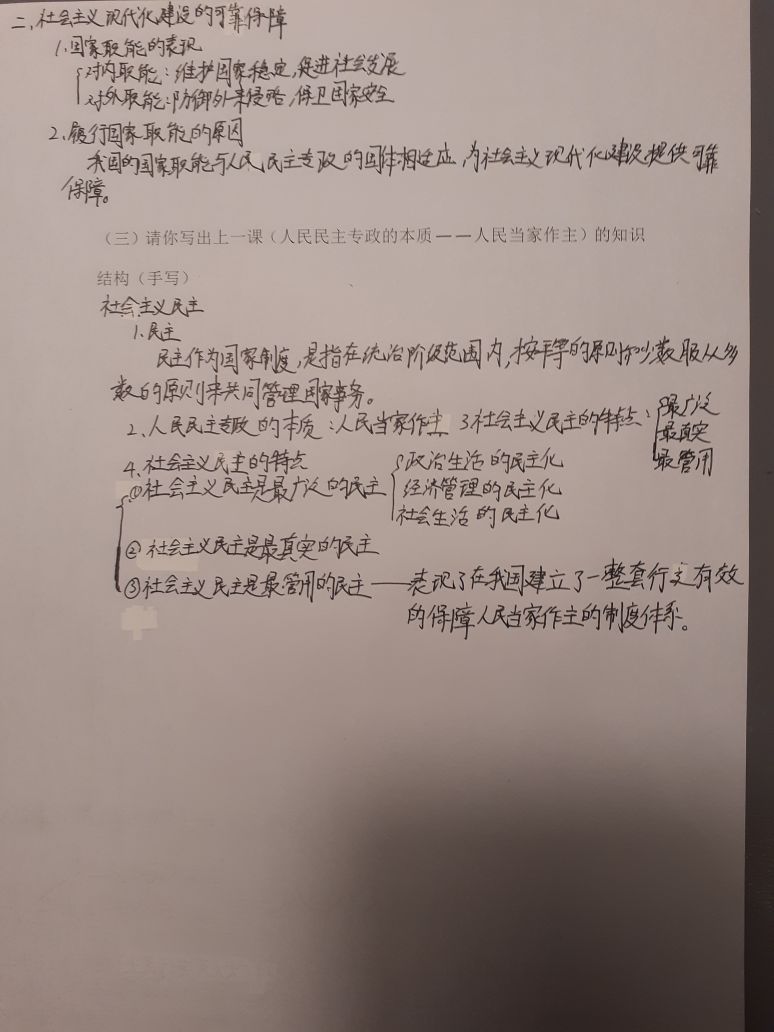 二、社会主义现代化建设的可靠保障
1.国家职能的表现
对内职能：维护国家稳定，促进社会发展
对外职能：防御外来侵略，保卫国家安全
2、履行国家职能的原因
我国的国家职能与人民民主专政的国体相适应，为社会主义现代化建设提供可靠
保障。
（三）请你写出上一课（人民民主专政的本质——人民当家作主）的知识
结构（手写）
社会主义民主
1.民主
民主作为国家制度，是指在统治阶级范围内，按平等的原则和少数服从多
数的原则来共同管理国家事务。
2、人民民主专政的本质：人民当家作主 3社会主义民主的特点：最广泛
最真实
最管用
4、社会主义民主的特点
①社会主义民主是最广泛的民主
政治生活的民主化
经济管理的民主化
社会生活的民主化
②社会主义民主是最真实的民主
③社会主义民主是最管用的民主——表现了在我国建立了一整套行之有效
的保障人民当家作主的制度体系。